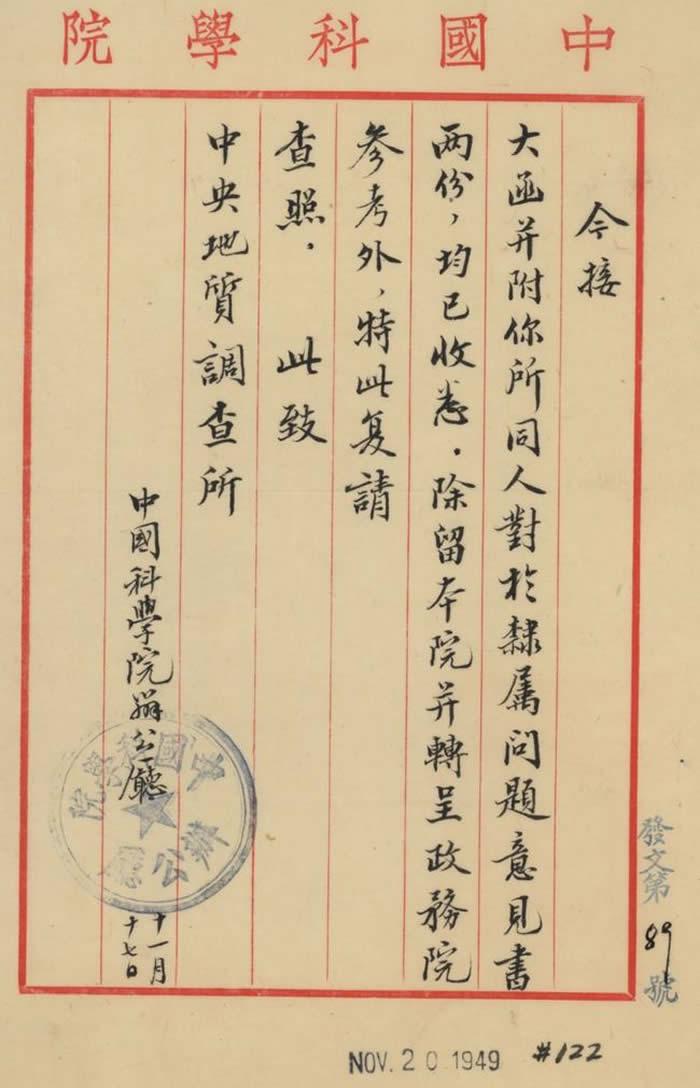 中國科學院
今接
大函并附你所同人對於隸属问題意見書
两份，均已收悉．除留本院并轉呈政務院
参考外，特此复請
查照． 此致
中央地质調查所
中國科學院辦公廳
十一月
十七日
中國科學院
辦公廳
發文第89號
NOV. 20 1949
#122